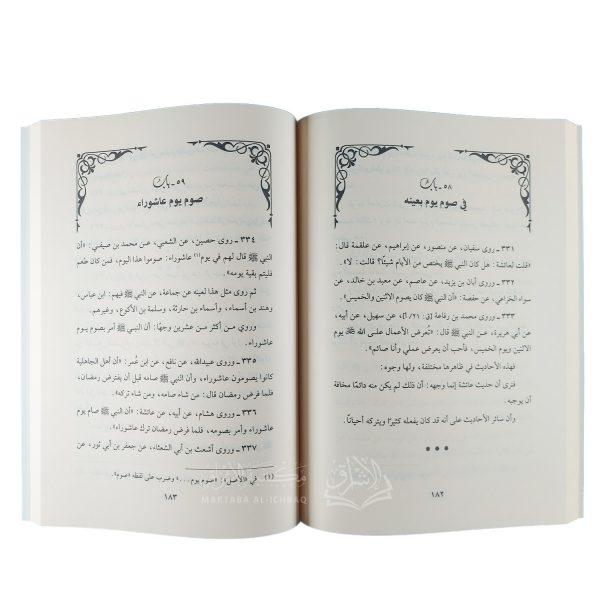 ٥٨ ـ باب
في صوم يوم بعينه
٣٣١ ـ روى سفيان، عن منصور، عن إبراهيم، عن علقمة قال:
«قلت لعائشة: هل كان النبي ﷺ يختص من الأيام شيئًا؟ قالت: لا».
٣٣٢ ـ وروى أبان بن يزيد، عن عاصم، عن معبد بن خالد، عن
سواء الخزاعي، عن حفصة: «أن النبي ﷺ كان يصوم الاثنين والخميس».
٣٣٣ ـ وروى محمد بن رفاعة [ق: ٢١/أ] عن سهيل، عن أبيه،
عن أبي هريرة، عن النبي ﷺ قال: «تُعرض الأعمال على الله ﷻ يوم
الاثنين ويوم الخميس، فأحب أن يعرض عملي وأنا صائم».
فهذه الأحاديث في ظاهرها مختلفة، ولها وجوه:
فنرى أن حديث عائشة إنما وجهه: أن ذلك لم يكن منه دائمًا مخافة
أن يوجبه.
وأن سائر الأحاديث على أنه قد كان يفعله كثيرًا ويتركه أحيانًا.
١٨٢
٥٩ ـ باب
صوم يوم عاشوراء
٣٣٤ ـ وروى حصين، عن الشعبي، عن محمد بن صيفي: «أن
النبي ﷺ قال لهم في يوم(١) عاشوراء: صوموا هذا اليوم، فمن كان طعم
فليتم بقية يومه».
ثم روي مثل هذا لعينه عن جماعة، عن النبي ﷺ فيهم: ابن عباس،
وهند بن أسماء، وأسماء بن حارثة، وسلمة بن الأكوع، وغيرهم.
وروي من أكثر من عشرين وجهًا: أن النبي ﷺ أمر بصوم يوم
عاشوراء.
٣٣٥ ـ وروى عبيدالله، عن نافع، عن ابن عُمر: «أن أهل الجاهلية
كانوا يصومون عاشوراء، وأن النبي ﷺ صامه قبل أن يفترض رمضان،
فلما فرض رمضان قال: من شاء صامه، ومن شاء تركه».
٣٣٦ ـ وروى هشام، عن أبيه، عن عائشة: «أن النبي ﷺ صام يوم
عاشوراء وأمر بصومه، فلما فرض رمضان ترك عاشوراء».
٣٣٧ ـ وروى أشعث بن أبي الشعثاء، عن جعفر بن أبي ثور، عن
(١) في «الأصل»: «صوم يوم....» وضرب على لفظه «صوم».
١٨٣
مكتبة الإشراق
MAKTABA AL-ICHRAQ